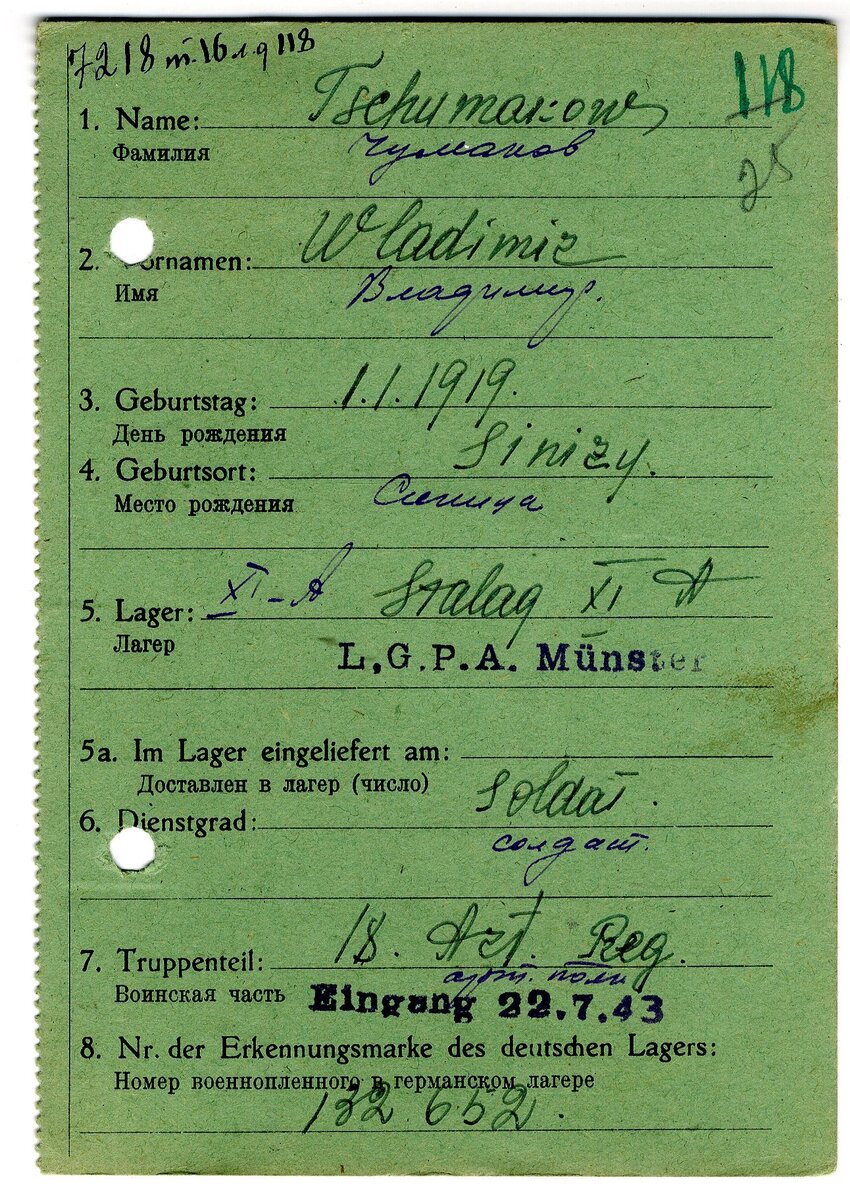 7218 т.16 л.д 118
118
25
1. Name: Tschumakow
Фамилия Чумаков
2. Vornamen: Wladimir
Имя Владимир.
3. Geburtstag: 1.1.1919.
День рождения
4. Geburtsort: Sinizy.
Место рождения Синица
5. Lager: XI-A Stalag XI A
Лагер
L,G.P.A. Münster
5a. Im Lager eingeliefert am:
Доставлен в лагер (число)
6. Dienstgrad: Soldat.
солдат.
7. Truppenteil: 18. Art. Reg.
арт. полк
Воинская часть Eingang 22.7.43
8. Nr. der Erkennungsmarke des deutschen Lagers:
Номер военнопленного в германском лагере
132 652.